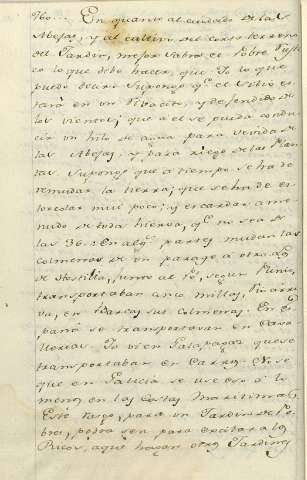 760... En quanto al cuidado de las
Abejas, y al cultivo del corto terreno
del Jardin, mejor sabrá el Pobre Rusti
co lo que debe hacer, que Yo lo que
puedo decir. Supongo qe el sitio es
tará en un Ribacito, y defendido de
los vientos; que a el se pueda condu
cir un hilo de agua para bebida de
las Abejas; y para riego de las Plan
tas. Supongo que a tiempo se ha de
remudar la tierra; que se ha de es
tercolar mui poco; y escardar a me
nudo de toda hierva, qe no sea de
las 36. En algs partes mudan las
colmenas de un parage a otro. Los
de Hostilia, junto al Pó, segun Plinio,
transportaban cinco millas, Rio arri
va, en Barcas sus colmenas. En Es
paña se transportavan en Cava
llerias. Yo vi en
transportaban en Carros. No se
que en Galicia se use eso a lo
menos en las Costas Maritimas.
Esto tengo, para un Jardin de Po
bres, podrá ser para excitar a los
Ricos, a que hagan otros Jardines